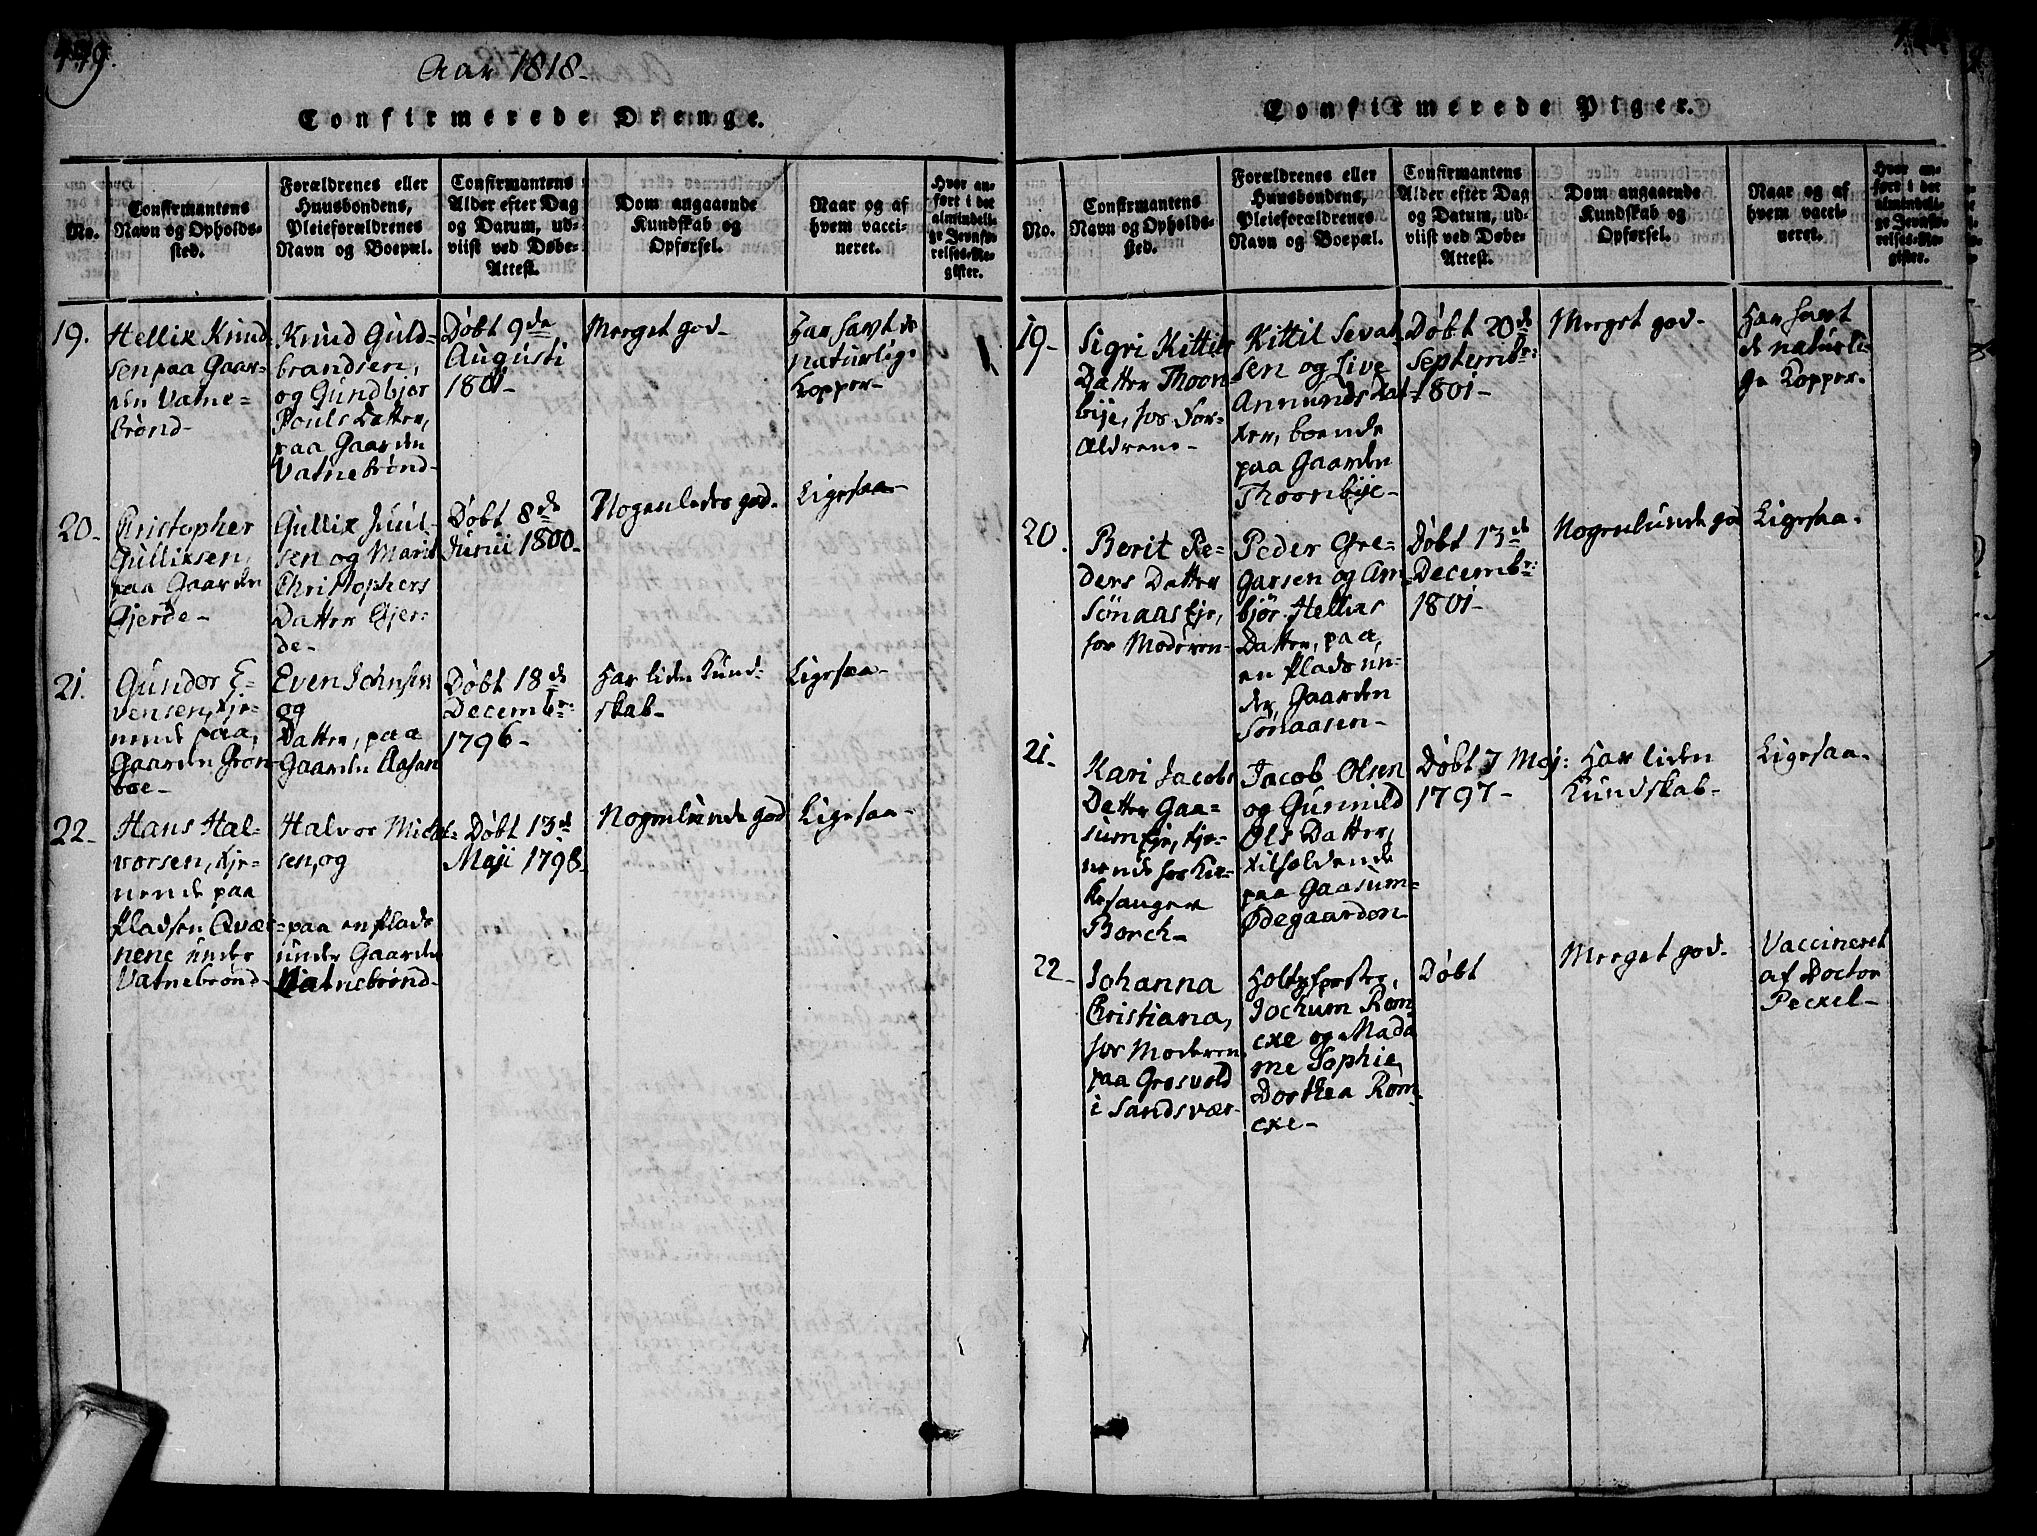 449.
Aar 1818.
Confirmerede Drenge.
No.
Confirmantens
Navn og Opholds-
sted.
Forældrenes eller
Huusbondens,
Pleieforældrenes
Navn og Boepæl.
Confirmantens
Alder efter Dag
og Datum, ud-
viist ved Døbe-
Attest.
Dom angaaende
Kundskab og
Opførsel.
Naar og af
hvem vacci-
neret.
Hvor an-
ført i det
almindeli-
ge Jevnfø-
relses-Re-
gister.
19.
Hellik Knud
sen paa Gaar-
den Vatne-
brønd-
Knud Guld-
brandsen,
og Gundbjør
Pouls Datter,
paa Gaarden
Vatnebrønd-
Døbt 9de
Augusti
1801-
Meeget god-
Har havt de
naturlige
Kopper-
20.
Christopher
Gulliksen,
paa Gaarden
Gjerde-
Gullik Juul-
sen og Marit
Christophers
Datter Gjer-
de-
Døbt 8de
Junii 1800-
Nogenledes god.
Ligesaa-
21.
Gunder E-
vensen, tje-
nende paa
Gaarden Grøn-
boe-
Even Johnsen
og
Datter, paa
Gaarden Aasan
Døbt 18de
Decembr:
1796-
Har liden Kund-
skab-
Ligesaa-
22-
Hans Hal-
vorsen, tje-
nende paa
Pladsen Qvær-
nene under
Vatnebrønd-
Halvor Mickel-
sen, og
paa en Plads
under Gaarden
Vatnebrønd-
Døbt 13de
Maji 1798
Nogenlunde god
Ligesaa-
Confirmerede Piger.
No.
Confirmantens
Navn og Opholds-
sted.
Forældrenes eller
Huusbondens,
Pleieforældrenes
Navn og Boepæl.
Confirmantens
Alder efter Dag
og Datum, ud-
viist ved Døbe-
Attest.
Dom angaaende
Kundskab og
Opførsel.
Naar og af
hvem vacci-
neret.
Hvor an-
ført i det
almindeli-
ge Jevnfø-
relses-Re-
gister.
19-
Sigri Kittils
Datter Thoen
bije, hos For-
ældrene-
Kittil Sevat-
sen og Live
Anmunds Dat-
ter, boende
paa Gaarden
Thoenbije-
Døbt 20de
Septembr:
1801-
Meeget god-
Har havt
de naturli-
ge Kopper.
20.
Berit Pe-
ders Datter
Sønaas Eje,
hos Moderen-
Peder Gre-
garsen og Am-
bjør Hellias
Datter, paa
en Plads un-
der Gaarden
Sønaasen-
Døbt 13de
Decembr:
1801-
Nogenlunde god
Ligesaa-
21-
Kari Jacobs
Datter Gaa-
sum Eje, tje-
nende hos Kir-
kesanger
Borch-
Jacob Olsen
og Gunnild
Ols Datter,
tilholdende
paa Gaasum-
Ødegaarden
Døbt 7 Maj:
1797-
Har liden
Kundskab-
Ligesaa-
22-
Johanna
Christiana,
hos Moderen
paa Gresvold
i Sandsvær-
Holtzførster,
Jochum Rom-
cke og Mada
me Sophie
Dorthea Rom-
cke-
Døbt
Meeget god-
Vaccineret
af Doctor
Peckel-